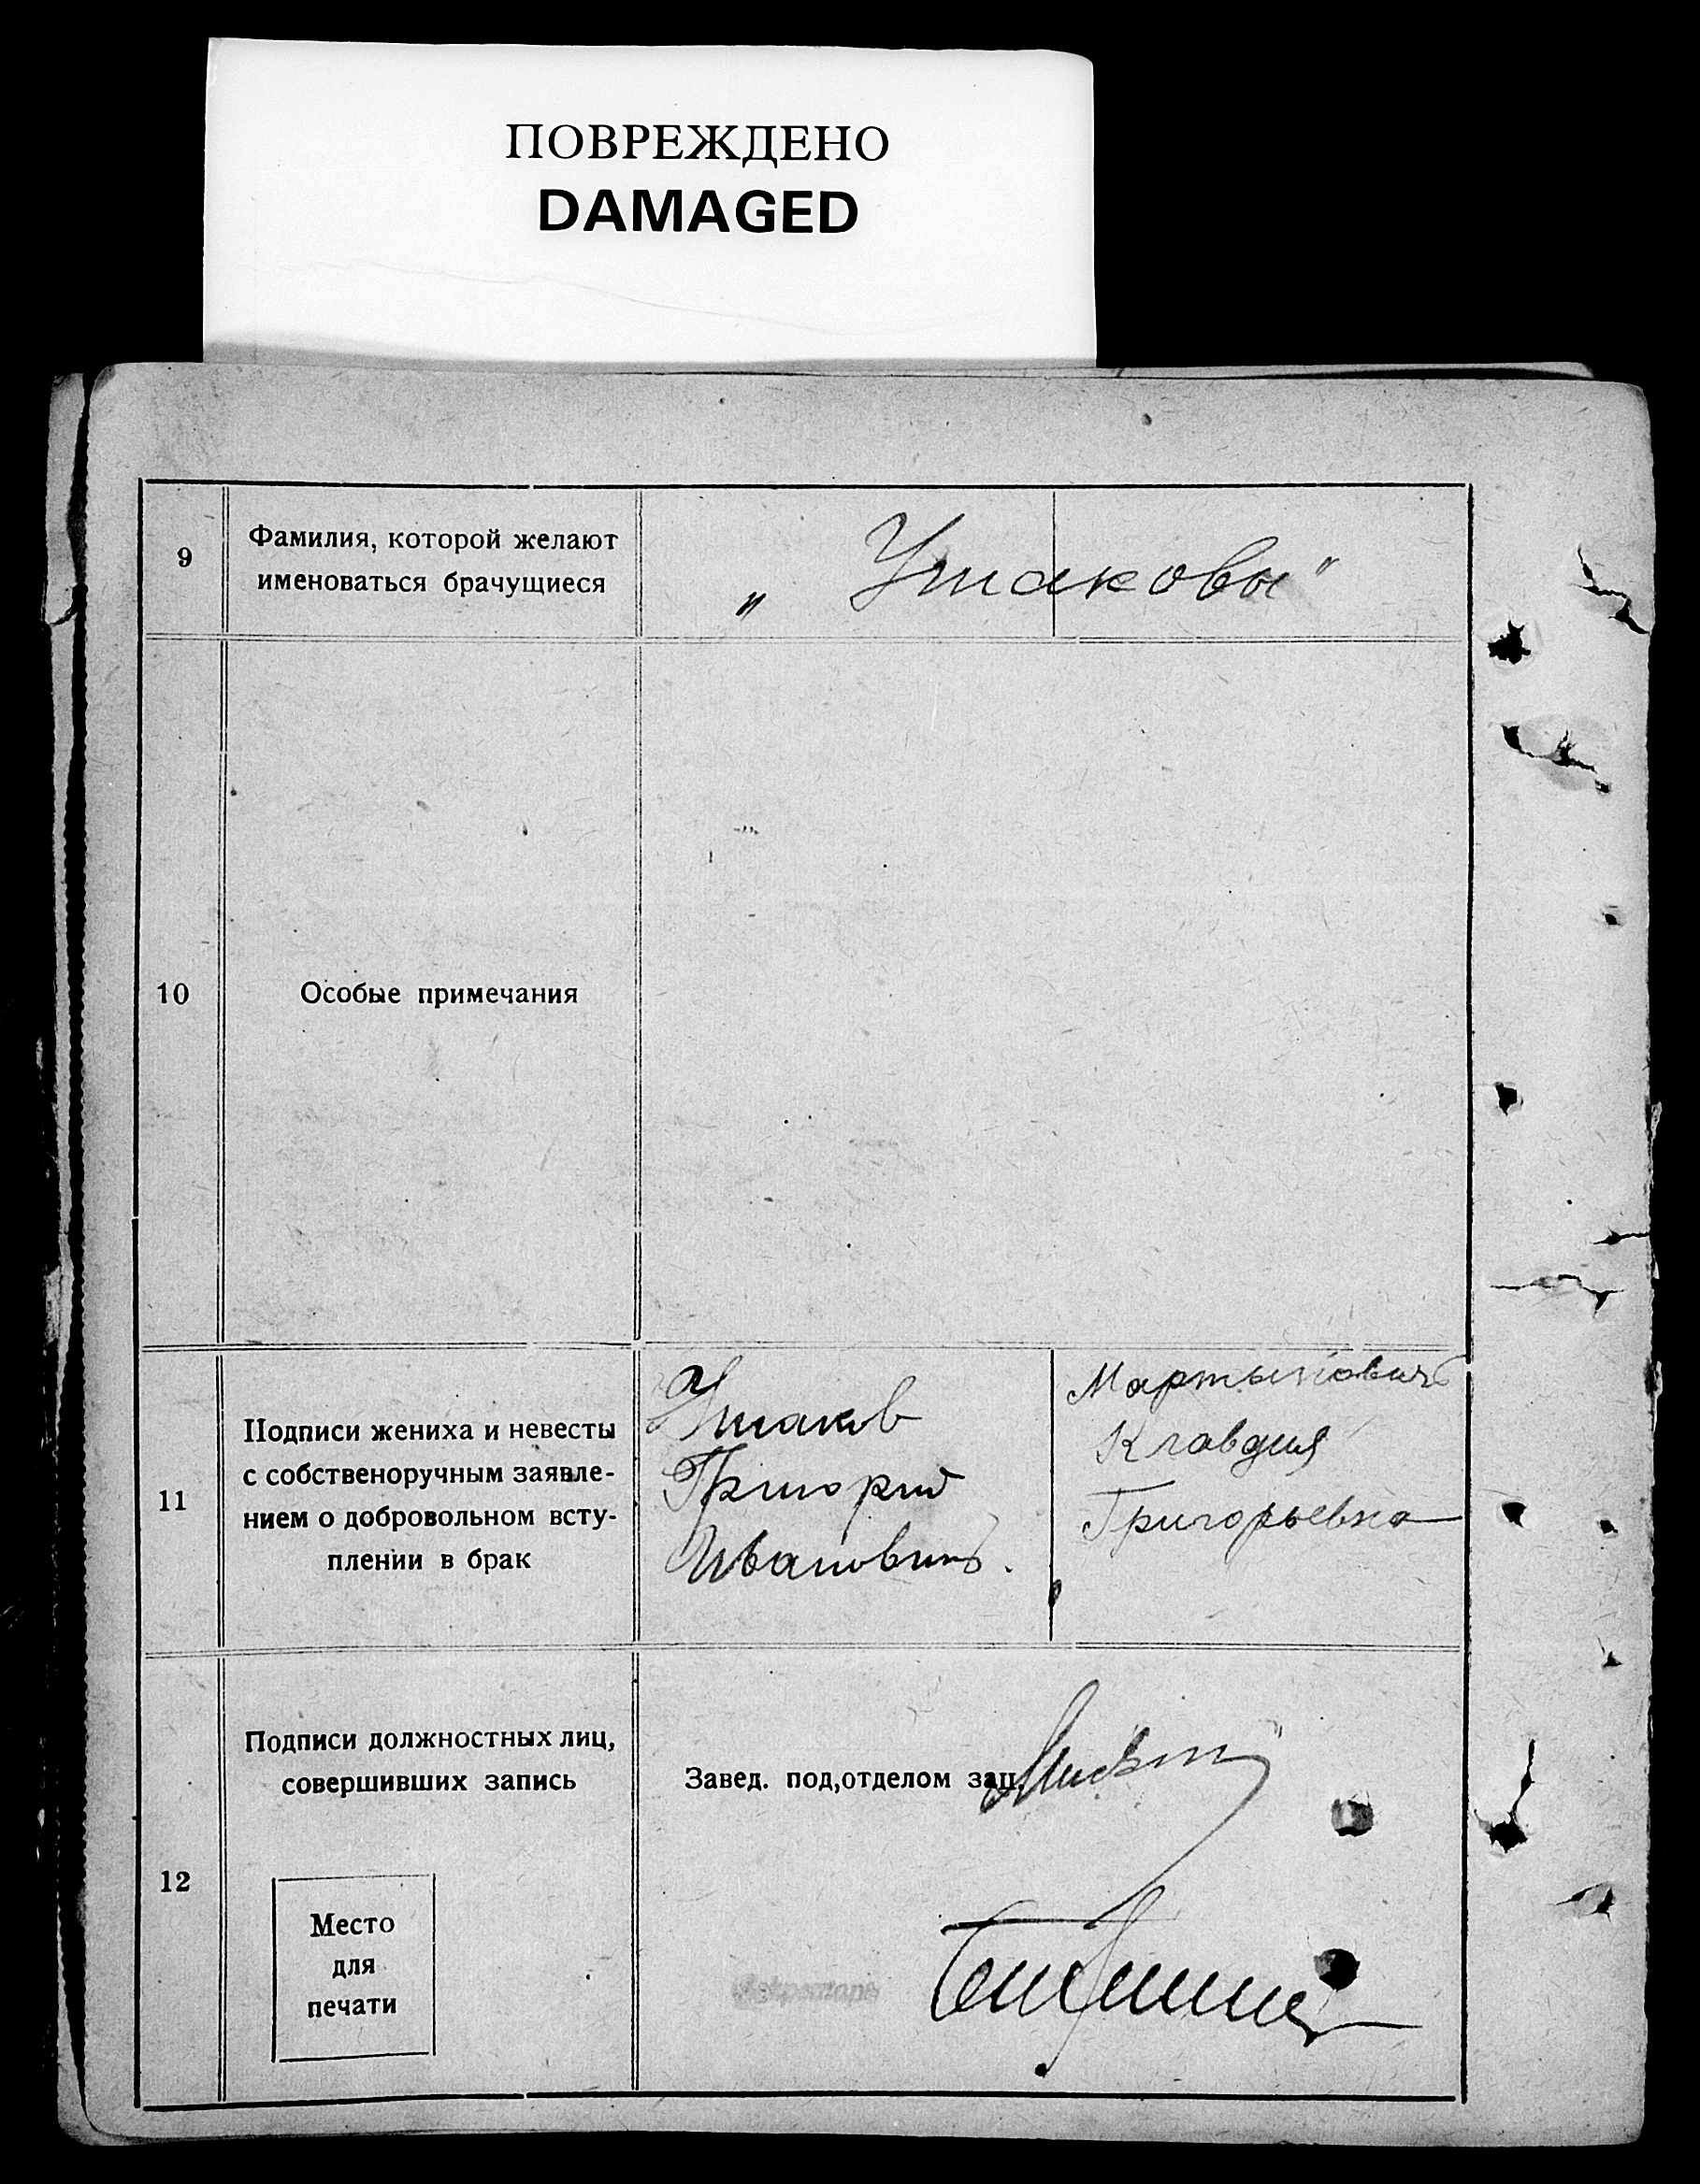 ПОВРЕЖДЕНО
DAMAGED
9
Фамилия, которой желают
именоваться брачущиеся
„ Ушаковы"
10
Особые примечания
11
Подписи жениха и невесты
с собственоручным заявле-
нием о добровольном всту-
плении в брак
Ушаков
Григорий
Ивановичъ.
Мартыновичъ
Клавдия
Григорьевна
12
Подписи должностных лиц,
совершивших запись
Завед. под,отделом зап.
Место
для
печати
Секретарь